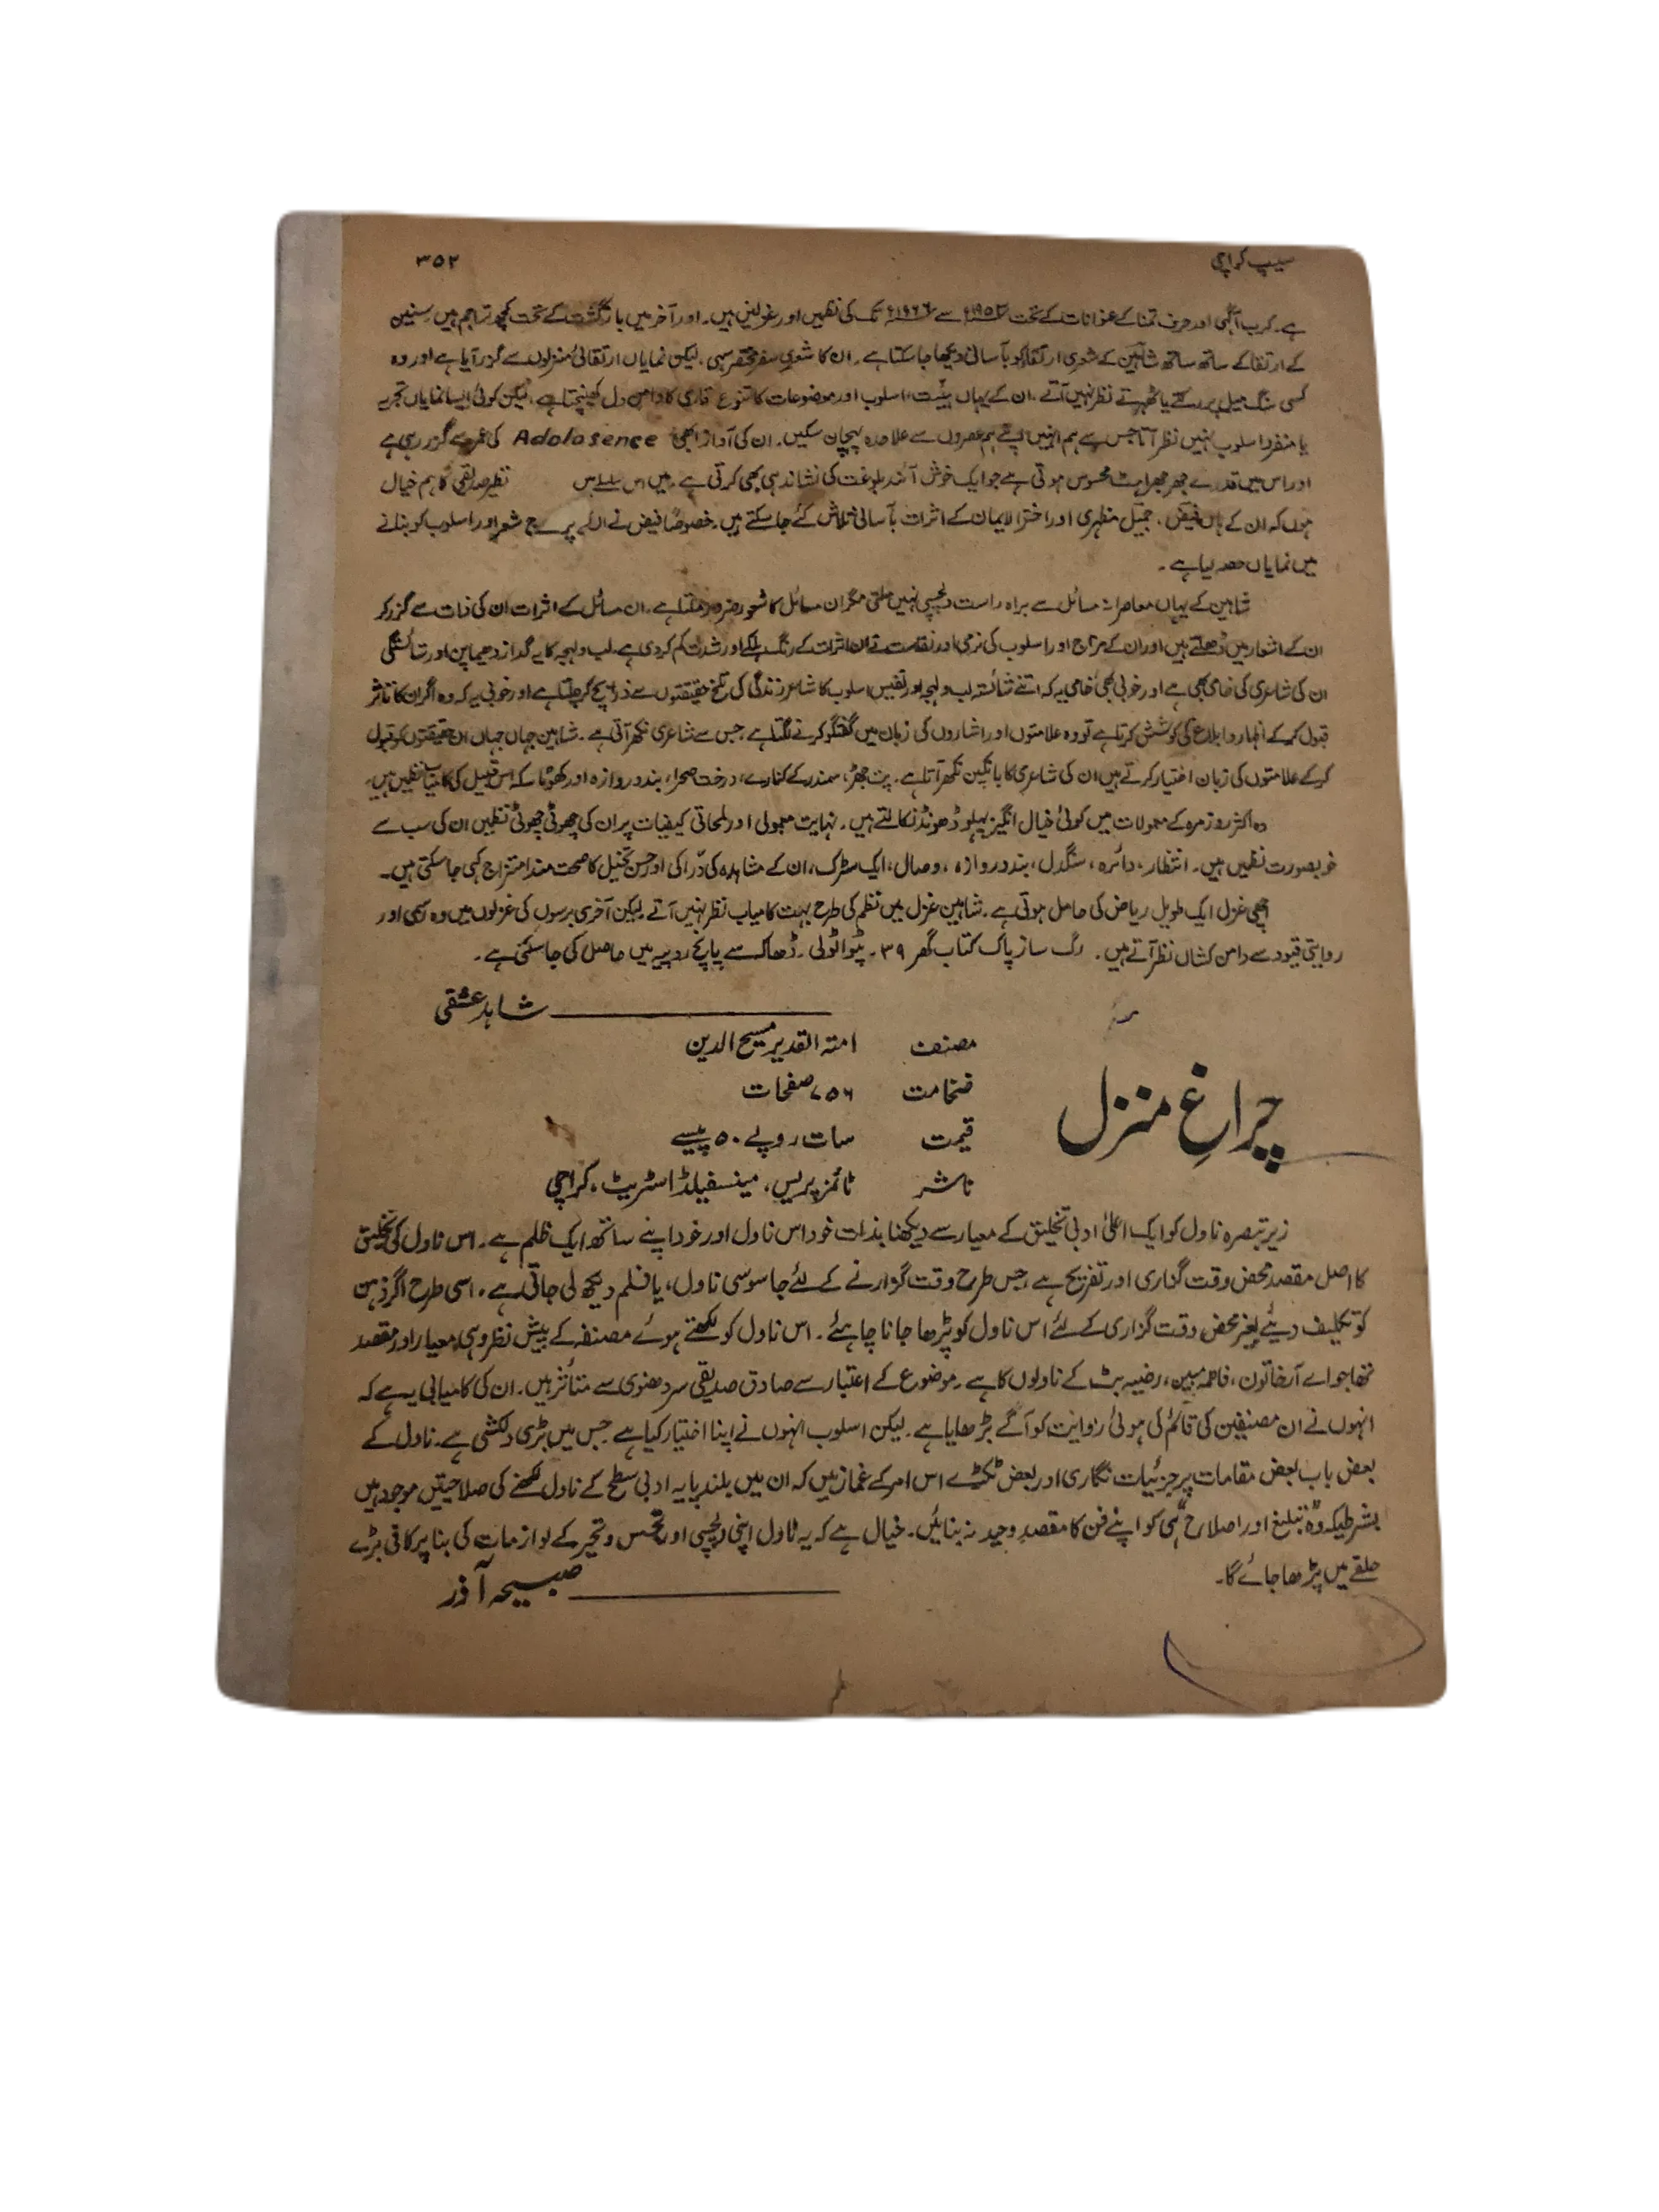 سیپ کراچی ۳۵۲
ہے۔ کرب آگہی اور حرف تمنا کے عنوانات کے تحت ۱۹۵۳ء سے ۱۹۶۶ء تک کی نظمیں اور غزلیں ہیں۔ اور آخر میں بازگشت کے تحت کچھ تراجم ہیں۔ سنین
کے ارتقا کے ساتھ ساتھ شاہین کے شعری ارتقا کو بآسانی دیکھا جا سکتا ہے۔ ان کا شعری سفر مختصر سہی۔ لیکن نمایاں ارتقائی منزلوں سے گزر آیا ہے اور وہ
کسی سنگ میل پر رکتے یا ٹھہرتے نظر نہیں آتے۔ ان کے یہاں ہیئت، اسلوب اور موضوعات کا تنوع قاری کا دامن دل کھینچتا ہے، لیکن کوئی ایسا نمایاں تجربہ
یا منفرد اسلوب نہیں نظر آتا جس سے ہم انہیں اپنے ہم عصروں سے علاحدہ پہچان سکیں۔ ان کی آواز ابھی Adolosence کی عمر سے گزر رہی ہے
اور اس میں قدرے جھرجھراہٹ محسوس ہوتی ہے جو ایک خوش آئند بلوغت کی نشاندہی بھی کرتی ہے۔ میں اس نظیر صدیقی کا ہم خیال
ہوں کہ ان کے ہاں فیض، جمیل مظہری اور اختر الایمان کے اثرات بآسانی تلاش کئے جا سکتے ہیں۔ خصوصاً فیض نے ان کے شعر اور اسلوب کو بنانے
میں نمایاں حصہ لیا ہے۔
شاہین کے یہاں معاصرانہ مسائل سے براہ راست دلچسپی نہیں ملتی مگر ان مسائل کا شعور ضرور ملتا ہے۔ ان مسائل کے اثرات ان کی ذات سے گزر کر
ان کے اشعار میں ڈھلتے ہیں اور ان کے مزاج اور اسلوب کی نرمی اور نفاست نے ان اثرات کے رنگ ہلکے اور شدت کم کر دی ہے۔ لب و لہجہ کا یہ گداز دھیما پن اور شائستگی
ان کی شاعری کی خامی بھی ہے اور خوبی بھی۔ خامی یہ کہ اتنے شائستہ لب و لہجہ اور نفیس اسلوب کا شاعر زندگی کی تلخ حقیقتوں سے ذرا بچ کر چلتا ہے اور خوبی یہ کہ وہ اگر ان کا تاثر
قبول کر کے اظہار و ابلاغ کی کوشش کرتا ہے تو وہ علامتوں اور اشاروں کی زبان میں گفتگو کرنے لگتا ہے جس سے شاعری نکھر آتی ہے۔ شاہین جہاں جہاں ان حقیقتوں کو قبول
کر کے علامتوں کی زبان اختیار کرتے ہیں ان کی شاعری کا بانکپن نکھر آتا ہے۔ پت جھڑ، سمندر کے کنارے، درخت صحرا، بند دروازہ اور کھوٹا سکہ اس قبیل کی کامیاب نظمیں ہیں۔
وہ اکثر روزمرہ کے معمولات میں کوئی خیال انگیز پہلو ڈھونڈ نکالتے ہیں۔ نہایت معمولی اور لمحاتی کیفیات پر ان کی چھوٹی چھوٹی نظمیں ان کی سب سے
خوبصورت نظمیں ہیں۔ انتظار، دائرہ، سنگدل، بند دروازہ، وصال، ایک سڑک، ان کے مشاہدہ کی درّاکی اور حسن تخیل کا صحت مند امتزاج کہی جا سکتی ہیں۔
اچھی غزل ایک طویل ریاض کی حامل ہوتی ہے۔ شاہین غزل میں نظم کی طرح بہت کامیاب نظر نہیں آتے۔ لیکن آخری برسوں کی غزلوں میں وہ رسمی اور
روایتی قیود سے دامن کشاں نظر آتے ہیں۔ رگ ساز پاک کتاب گھر ۳۹۔ پٹوا ٹولی۔ ڈھاکہ سے پانچ روپیہ میں حاصل کی جا سکتی ہے۔
شاہد عشقی
چراغِ منزل
مصنف امتہ القدیر مسیح الدین
ضخامت ۷۵۶ صفحات
قیمت سات روپے ۵۰ پیسے
ناشر ٹائمز پریس، مینسفیلڈ اسٹریٹ، کراچی
زیر تبصرہ ناول کو ایک اعلیٰ ادبی تخلیق کے معیار سے دیکھنا بذات خود اس ناول اور خود اپنے ساتھ ایک ظلم ہے۔ اس ناول کی تخلیق
کا اصل مقصد محض وقت گذاری اور تفریح ہے، جس طرح وقت گزارنے کے لئے جاسوسی ناول، یا فلم دیکھ لی جاتی ہے۔ اسی طرح اگر ذہن
کو تکلیف دیئے بغیر محض وقت گزاری کے لئے اس ناول کو پڑھا جانا چاہئے۔ اس ناول کو لکھتے ہوئے مصنفہ کے پیش نظر وہی معیار اور مقصد
تھا جو اے آر خاتون، فاطمہ مبین، رضیہ بٹ کے ناولوں کا ہے۔ موضوع کے اعتبار سے صادق صدیقی سردھنوی سے متاثر ہیں۔ ان کی کامیابی یہ ہے کہ
انہوں نے ان مصنفین کی قائم کی ہوئی روایت کو آگے بڑھایا ہے۔ لیکن اسلوب انہوں نے اپنا اختیار کیا ہے جس میں بڑی دلکشی ہے۔ ناول کے
بعض باب بعض مقامات پر جزئیات نگاری اور بعض ٹکڑے اس امر کے غماز ہیں کہ ان میں بلند پایہ ادبی سطح کے ناول لکھنے کی صلاحیتیں موجود ہیں
بشرطیکہ وہ تبلیغ اور اصلاح ہی کو اپنے فن کا مقصدِ وحید نہ بنائیں۔ خیال ہے کہ یہ ناول اپنی دلچسپی اور تجسس و تحیر کے لوازمات کی بنا پر کافی بڑے
حلقے میں پڑھا جائے گا۔
صبیحہ آذر